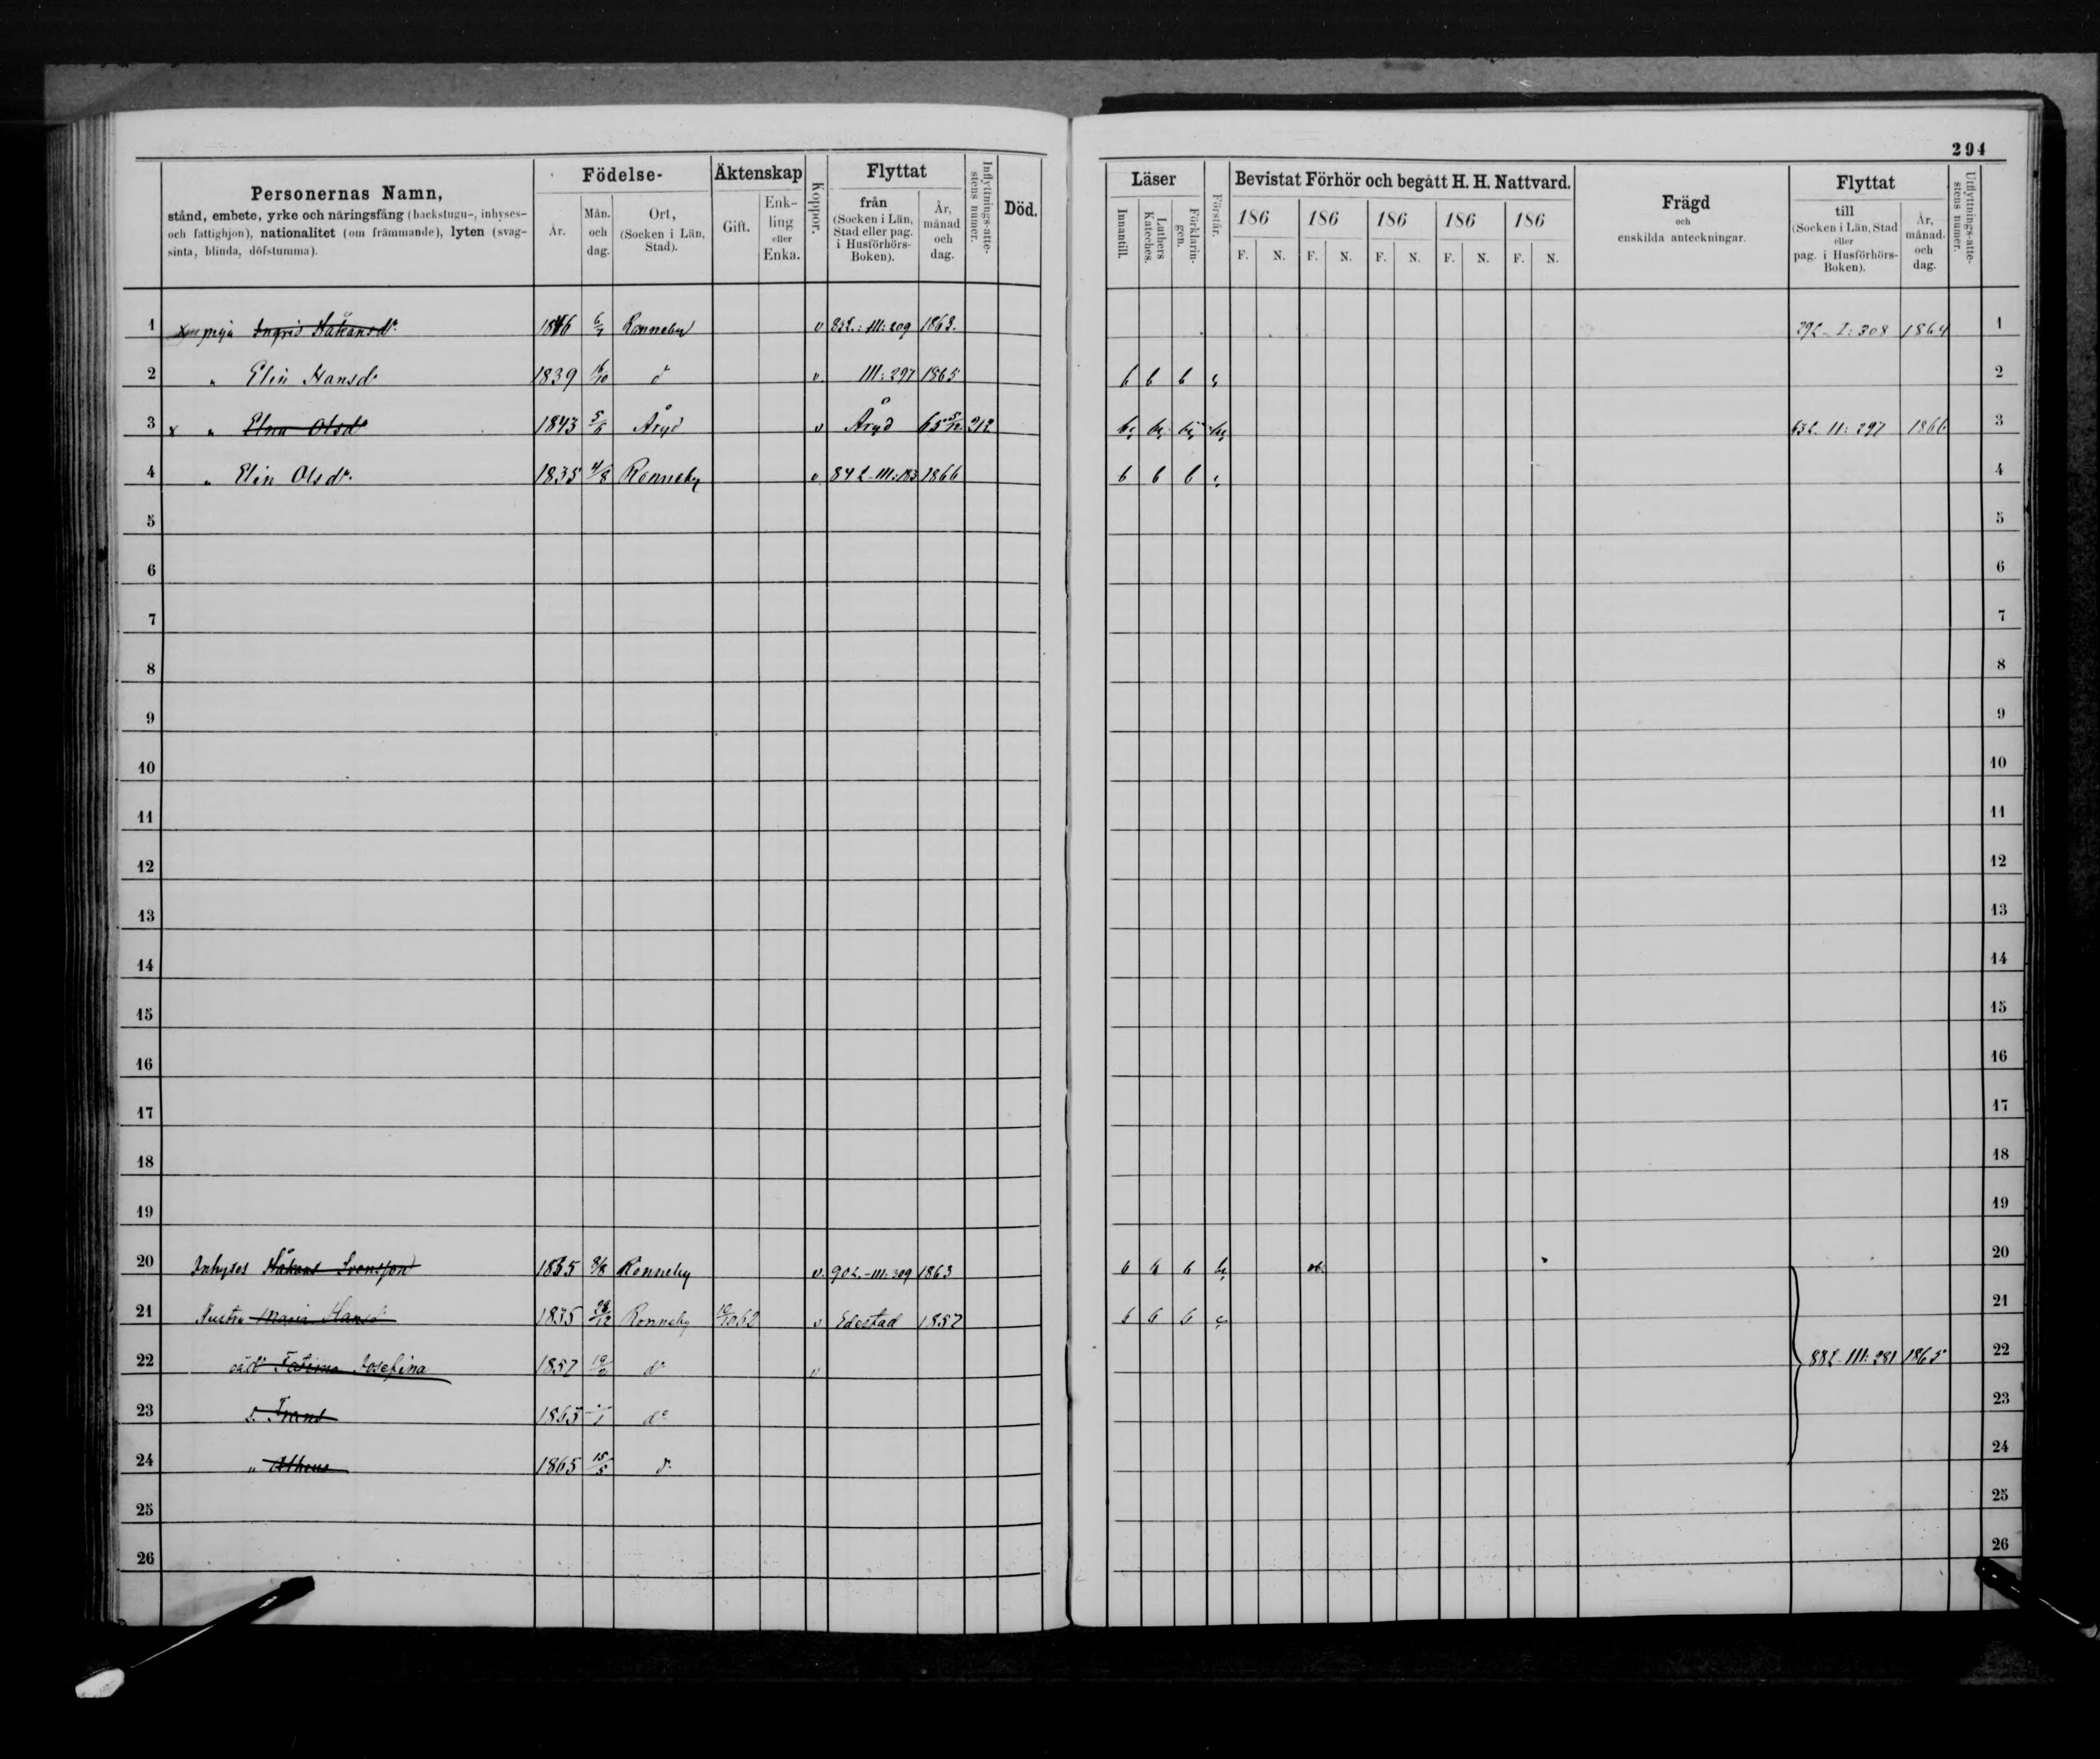 294
Personernas Namn,
stånd, embete, yrke och näringsfång (backstugu-, inhyses-
och fattighjon), nationalitet (om främmande), lyten (svag-
sinta, blinda, döfstumma).
Födelse-
År.
Mån. och dag.
Ort, (Socken i Län, Stad).
Äktenskap
Gift.
Enk- ling eller Enka.
Koppor.
Flyttat
från (Socken i Län, Stad eller pag. i Husförhörs- Boken).
År, månad och dag.
Inflyttnings-atte- stens numer.
Död.
Läser
Innantill.
Luthers Kateches.
Förklarin- gen.
Förstår.
Bevistat Förhör och begått H. H. Nattvard.
186 186 186 186 186
F. N. F. N. F. N. F. N. F. N.
Frägd
och
enskilda anteckningar.
Flyttat
till (Socken i Län, Stad eller pag. i Husförhörs- Boken).
År, månad och dag.
Utflyttnings-atte- stens numer.
1 piga Ingrid Håkansdr 1846 Ronneby v 1863. 392-I:308 1864 1
2 " Elin Hansdr 1839 do v. III:297 1865 6 6 6 2
3 x " Elna Olsdr 1843 5/6 Åryd v Åryd 65 212 II:297 1866 3
4 " Elin Olsdr. 1835 4/8 Ronneby v. 842-III:183 1866 6 6 6 4
5 5
6 6
7 7
8 8
9 9
10 10
11 11
12 12
13 13
14 14
15 15
16 16
17 17
18 18
19 19
20 Inhyses Håkan Svensson 1835 Ronneby v. 902-III:309 1863 20
21 Hustru Maria Hansdr 1835 28/12 Ronneby v Edestad 1857 6 6 6 21
22 Josefina 1857 do v 882-III:281 1865 22
23 s. Frans 1863 do 23
24 " 1865 15/5 do 24
25 25
26 26